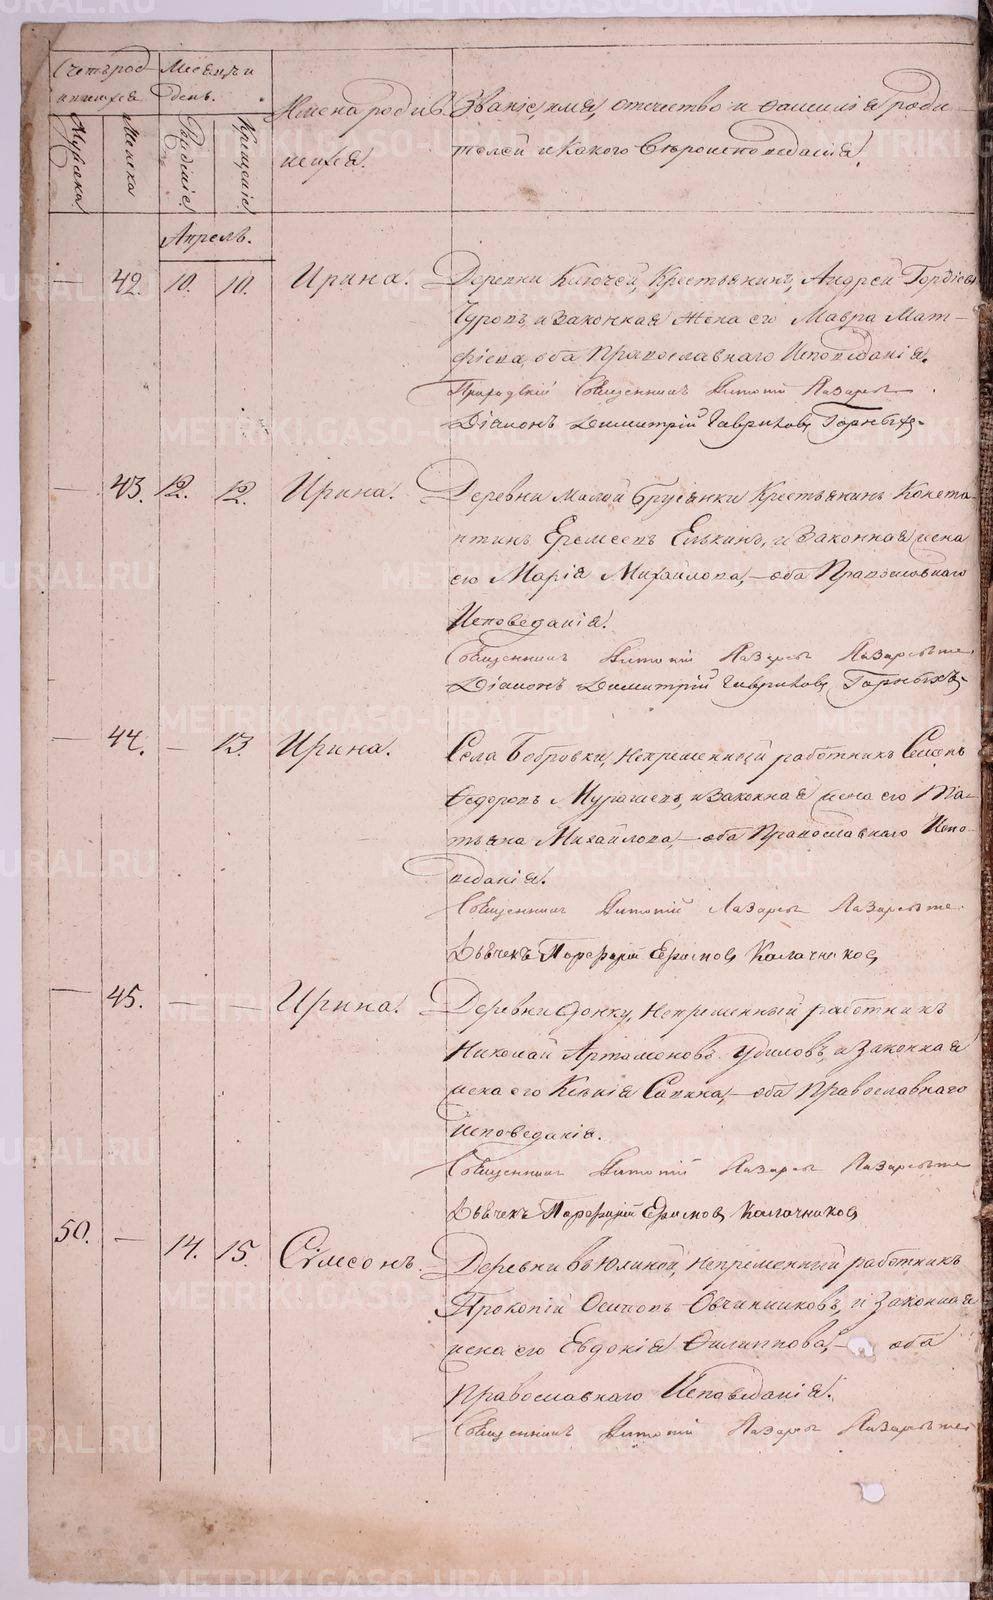 Счетъ род Месяцъ и
ившихся день.
Имена родив Званіе, имя, отчество и фамилія роди
шихся. телей и какого вѣроисповеданія.
Мужеска Женска Рожденіе Крещеніе
Апрель.
— 42. 10. 10. Ирина. Деревни Ключей, Крестьянинъ, Андрей Гордіевъ
Чуровъ, и законная жена его Мавра Мат-
фіева, оба Православнаго Исповѣданія.
Приходскій Священникъ Лазаревъ
Діаконъ Димитрій Гавриловъ Горныхъ
— 43. 12. 12. Ирина. Деревни Малой Брусянки Крестьянинъ Конста-
нтинъ Еремеевъ Елькинъ, и законная жена
его Марія Михайлова, — оба Православнаго
Исповеданія.
Священникъ Лазаревъ
Діаконъ Димитрій Гавриловъ Горныхъ
— 44. — 13 Ирина. Села Бобровки, Непременный работникъ Семенъ
Федоровъ Мурашевъ, и законная жена его Та-
тьяна Михайлова, — оба Православнаго Испо-
веданія.
Священникъ Лазаревъ
Дьячекъ Порфирій Калачниковъ
— 45. — — Ирина. Деревни Фомку, Непременный работникъ
Николай Артамоновъ и законная
жена его Ксенія Савина, — оба Православнаго
Исповеданія.
Священникъ Лазаревъ
Дьячекъ Порфирій Калачниковъ
50. — 14. 15. Сѵмеонъ. Деревни Непременный работникъ
Прокопій Осиповъ Овчинниковъ, и законная
жена его Евдокія Филиппова, — оба
Православнаго Исповеданія.
Священникъ Лазаревъ